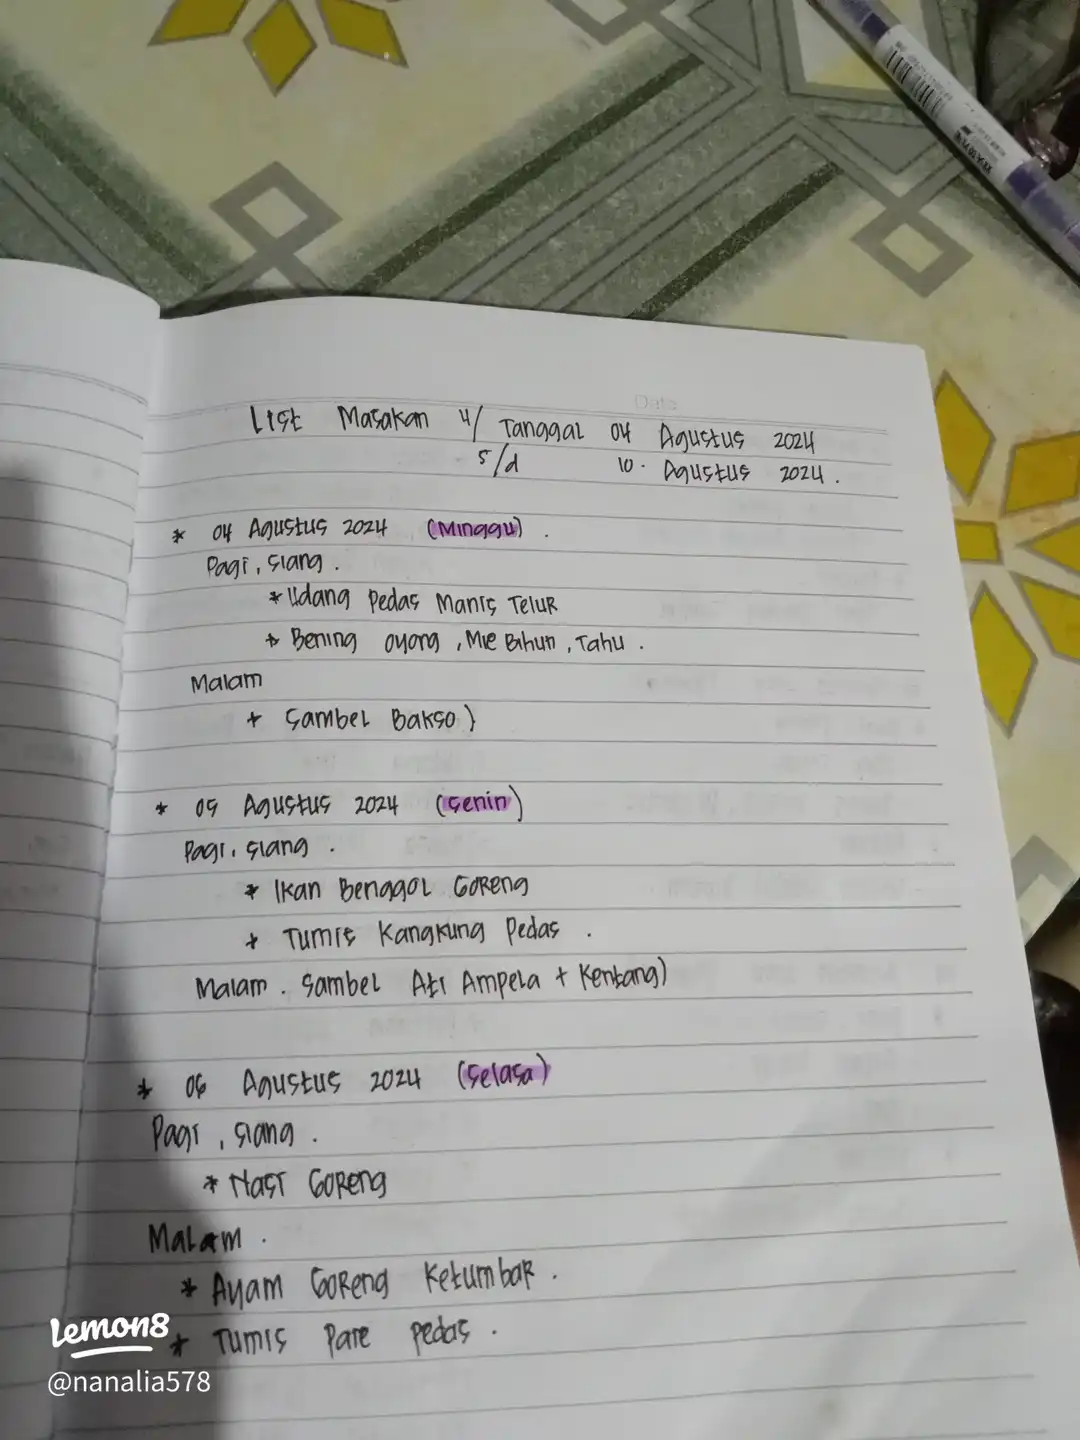 List Masakan u/ Tanggal 04 Agustus 2024
s/d 10. Agustus 2024.
* 04 Agustus 2024 (Minggu).
Pagi, siang.
* Udang Pedas Manis Telur
* Bening oyong, Mie Bihun, Tahu.
Malam
+ Sambel Bakso)
* 05 Agustus 2024 (Senin)
Pagi, siang.
* Ikan Benggol Goreng
+ Tumis Kangkung Pedas.
Malam. Sambel Ati Ampela + Kentang)
* 06 Agustus 2024 (Selasa)
Pagi, siang.
* Nasi Goreng
Malam.
* Ayam Goreng Ketumbar.
* Tumis Pare pedas.
Lemon8
@nanalia578